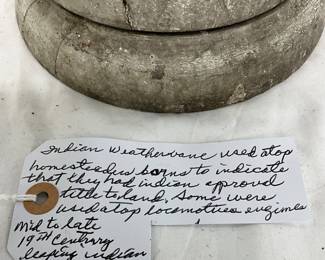 Indian Weathervane used atop
homesteaders barns to indicate
that they had indian approval
title to land. Some were
used atop locomotives engines
Mid to late
19TH Century
leaping indian